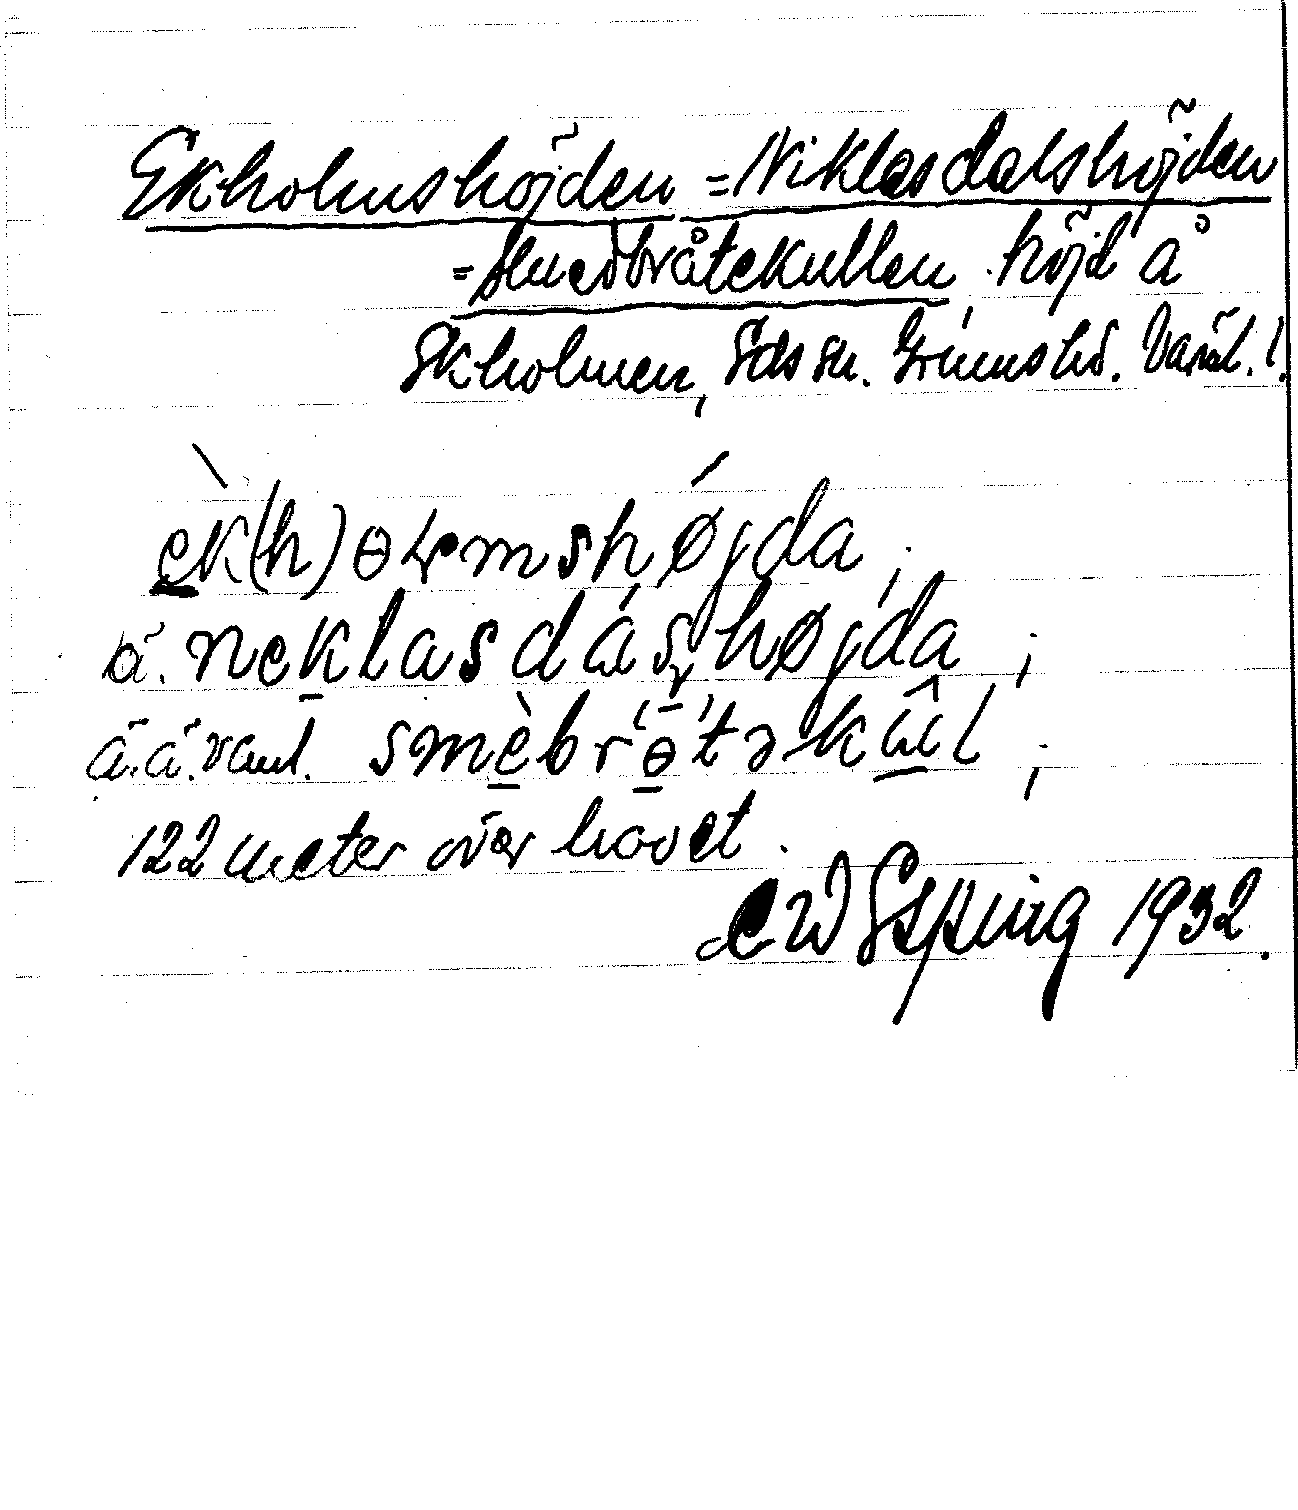 Ekholmshöjden = Niklasdalshöjden
= Smedbråtekullen, höjd å
Ekholmen, Eds sn. Grums hd. Värml.
èk(h)ɵɭmshǿjda;
ä. neklasdáʂhøjda;
ä. ä. vanl. smèbrɵ́təkûl;
122 meter över havet.
CW Esping 1932.